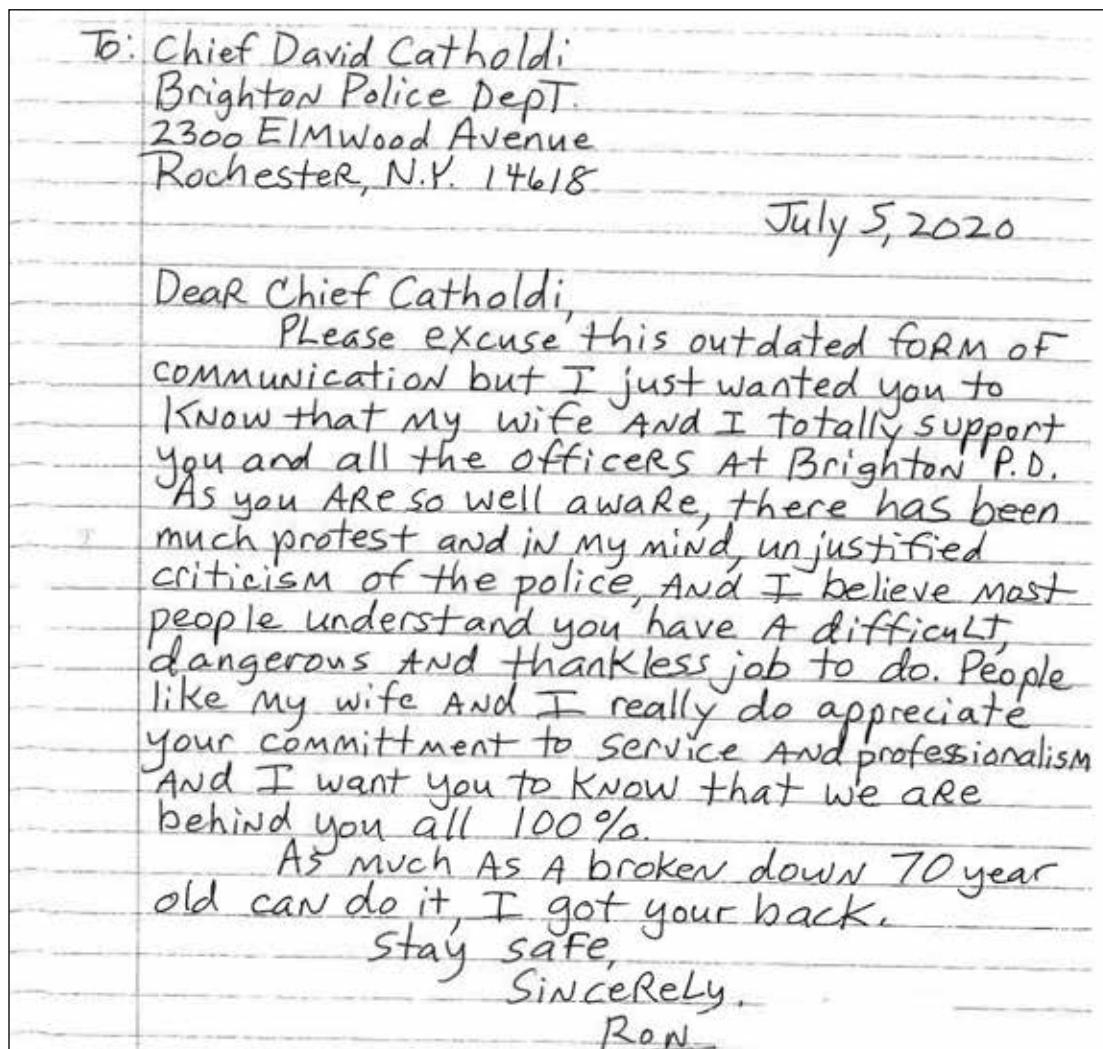 To: Chief David Catholdi
Brighton Police Dept.
2300 Elmwood Avenue
Rochester, N.Y. 14618
July 5, 2020
Dear Chief Catholdi,
Please excuse this outdated form of
communication but I just wanted you to
know that my wife and I totally support
you and all the officers at Brighton P.D.
As you are so well aware, there has been
much protest and in my mind, unjustified
criticism of the police, and I believe most
people understand you have a difficult,
dangerous and thankless job to do. People
like my wife and I really do appreciate
your committment to service and professionalism
and I want you to know that we are
behind you all 100%.
As much as a broken down 70 year
old can do it, I got your back.
Stay safe,
Sincerely.
Ron